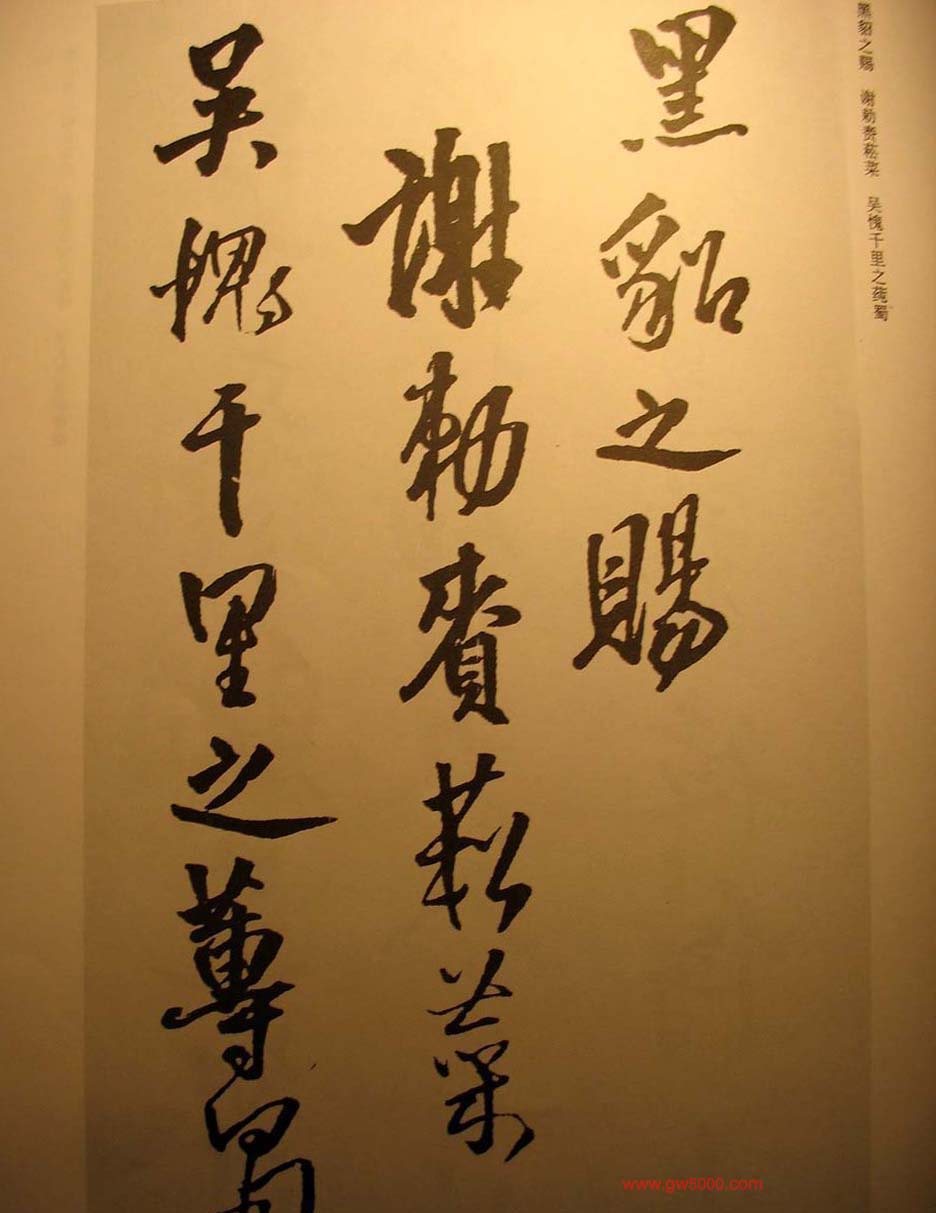 黑貂之赐　谢勅赉菘菜　吴愧千里之莼蜀
黑貂之賜
謝勅賚菘菜
吳愧千里之蓴蜀
www.gw5000.com